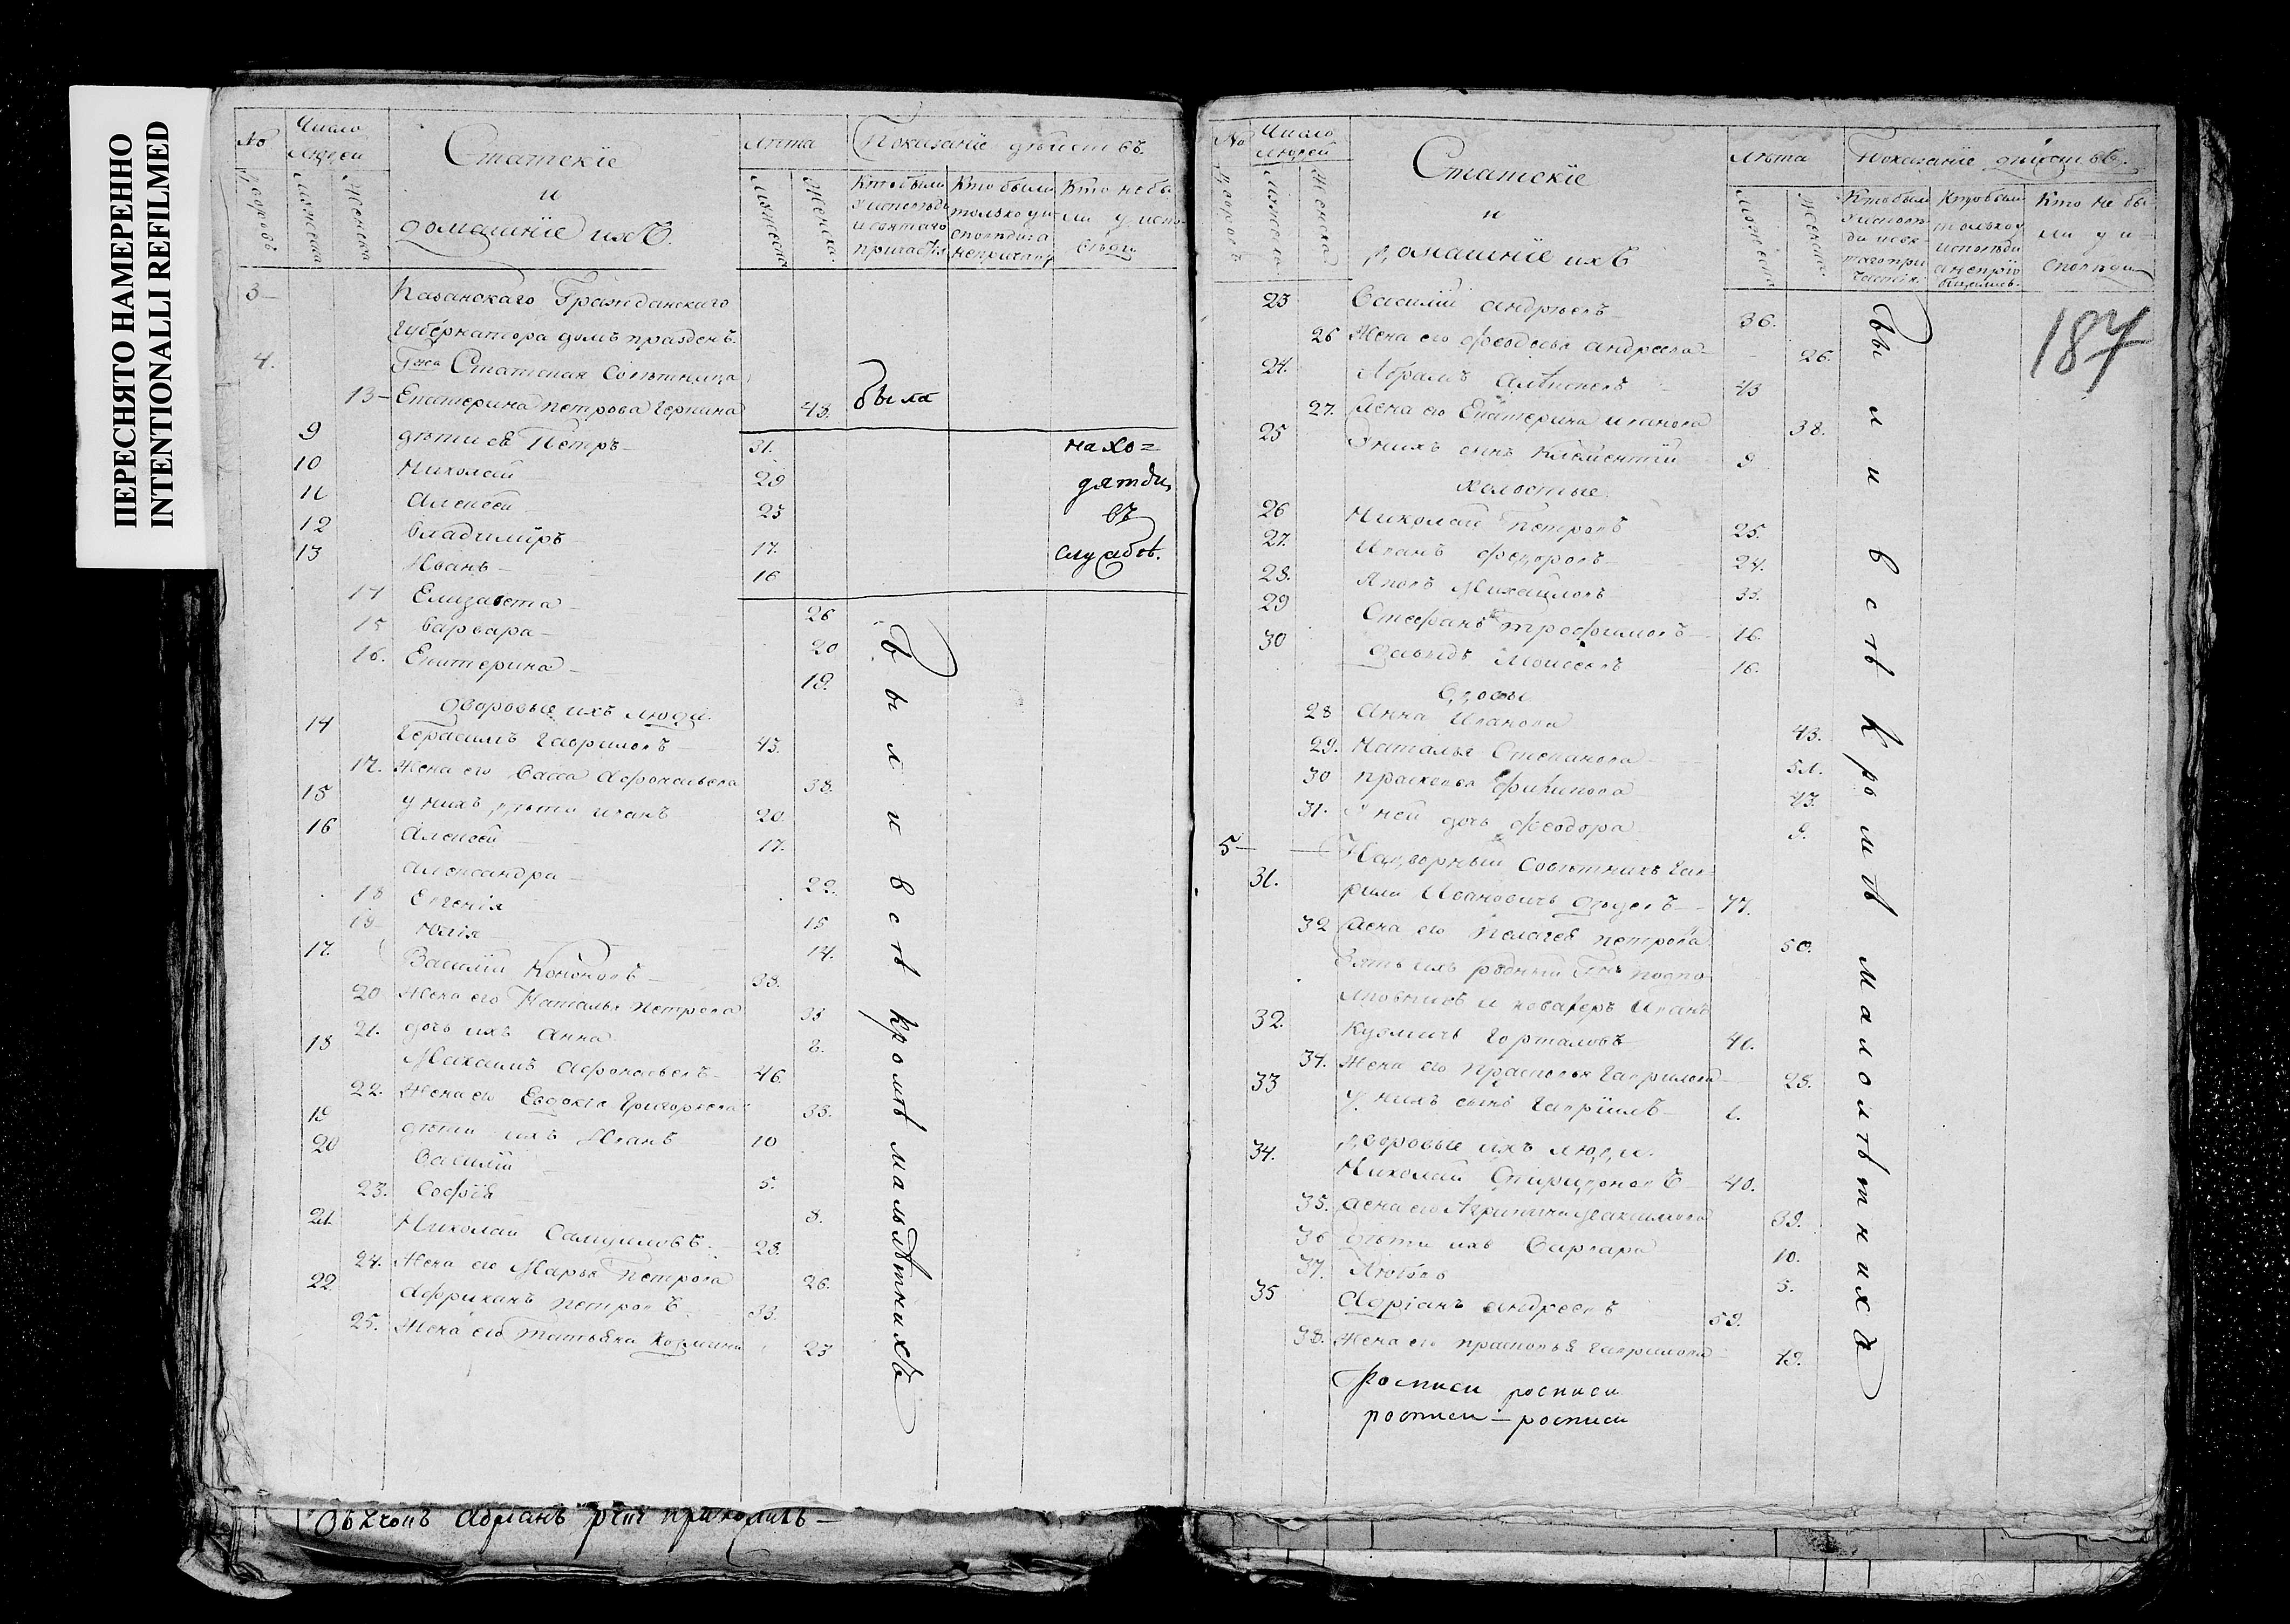 ПЕРЕСНЯТО НАМЕРЕННО
INTENTIONALLI REFILMED
№ Число людей Статскїе лѣта Показанїе дѣйствъ
и
домашнїе ихъ.
дворовъ мужеска женска мужеска женска Кто были у исповѣди и святаго причастїя Кто были только у исповѣди а не причаст Кто не были у исповѣди
3 Казанскаго Гражданскаго
Губернатора домъ празденъ.
4. Гжа Статская Совѣтница
13 Екатерина Петрова 48. была
9 дѣти ея Петръ 31. нахо=
10 Николай 29 дятся
11 Алексей 23 въ
12 Владимїръ 17. службѣ.
13 Иванъ 16
14 Елизавета 26
15 Варвара 20
16. Екатерина 19.
дворовые ихъ люди.
14 Герасимъ Гавриловъ 43.
17. Жена его Васса Афонасьева 38.
15 у нихъ дѣти Иванъ 20
16 Алексей 17.
Александра 22.
18 Евгенїя 15
19 Юлїя 14.
17. Василїй Кононовъ 38.
20 Жена его Наталья Петрова 35
21. дочь ихъ Анна 8.
18 Максимъ Афонасьевъ 46.
22. Жена его Евдокїя Григорьева 33.
19 дѣти ихъ Иванъ 10
20 Василїй 5.
23. Софїя 8.
21. Николай Самуиловъ 28.
24. Жена его Марья Петрова 26.
22 Африканъ Петровъ 33.
25. Жена его Татьяна Козмина 23
Были всѣ кромѣ малолѣтнихъ
Овчеиъ Адрїанъ
№ Число людей Статскїе лѣта Показанїе дѣйствъ.
и
домашнїе ихъ
дворовъ мужеска женска мужеска женска Кто были у исповѣди и святаго причастїя Кто были только у исповѣди а не прїобщались. Кто не были у исповѣди
187
23 Василїй Андреевъ 36.
26 Жена его Феодосья Андреева 26.
24. Абрамъ Алексеевъ 43
27. Жена его Екатерина Иванова 38.
25 У нихъ сынъ Климентїй 9
холостые.
26 Николай Петровъ 25.
27. Иванъ Федоровъ 24.
28. Яковъ Михайловъ 33.
29 Стефанъ Трофимовъ 16.
30 Давыдъ Моисеевъ 16.
Вдовы
28 Анна Иванова 43.
29. Наталья Степанова 51.
30 Прасковья Филипова 43.
31. У ней дочь Феодора 9.
5 Надворный Совѣтникъ Гав-
31. рила Ивановичъ 77.
32 Жена его Пелагея Петрова 50.
Зять ихъ родный Гнъ подпо-
лковникъ и кавалеръ Иванъ
32. Кузмичъ Горталовъ 41.
34. Жена его Прасковья Гаврилова 28.
33 У нихъ сынъ Гаврїилъ 6.
дворовые ихъ люди.
34. Николай Спиридоновъ 40.
35. Жена его Агрипина Максимова 39.
36 дѣти ихъ Варвара 10.
37. Любовь 5.
35 Адрїанъ Андреевъ 59.
38. Жена его Прасковья Гаврилова 49.
Были всѣ кромѣ малолѣтнихъ
Росписи росписи
росписи – росписи